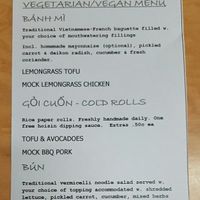 VEGETARIAN/VEGAN MENU
BÁNH MÌ
Traditional Vietnamese-French baguette filled w.
your choice of mouthwatering fillings
Incl. homemade mayonnaise (optional), pickled
carrot & daikon radish, cucumber & fresh
coriander.
LEMONGRASS TOFU
MOCK LEMONGRASS CHICKEN
GỎI CUỐN - COLD ROLLS
Rice paper rolls. Freshly handmade daily. One
free hoisin dipping sauce. Extras .50c ea
TOFU & AVOCADOES
MOCK BBQ PORK
BÚN
Traditional vermicelli noodle salad served w.
your choice of topping accommodated w. shredded
lettuce, pickled carrot, cucumber, mixed herbs